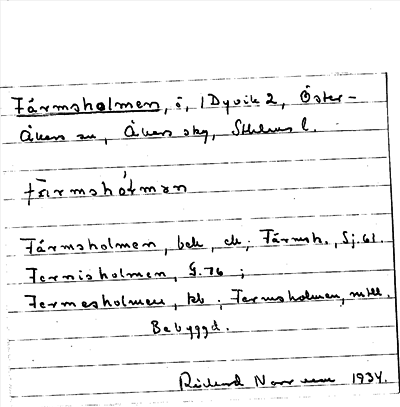 Färmsholmen, ö, i Dyvik 2, Öster-
Åkers sn, Åkers skg, Sthlms l.
färmshólmon
Färmsholmen, bek, ek; Färmsh., Sj.61.
Fernisholmen, G.76;
Fermesholmen, kb; Fermsholmen, mtl.
Bebyggd.
Rickard 1934.